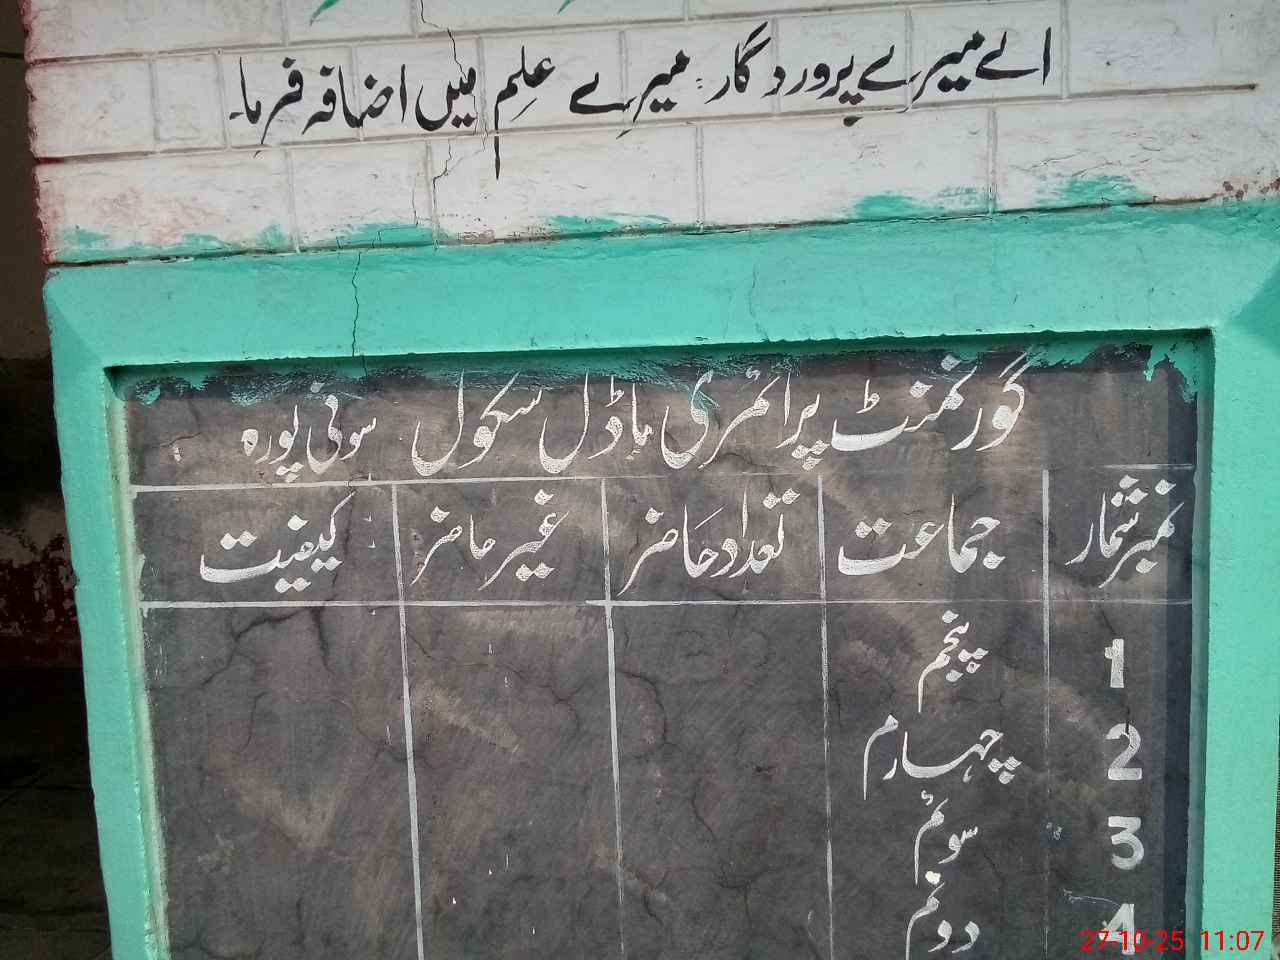 اے میرے پروردگار میرے علم میں اضافہ فرما۔
گورنمنٹ پرائمری ماڈل سکول سونی پورہ
نمبر شمار جماعت تعداد حاضر غیر حاضر کیفیت
1 پنجم
2 چہارم
3 سوئم
4 دوئم
27-10-25 11:07